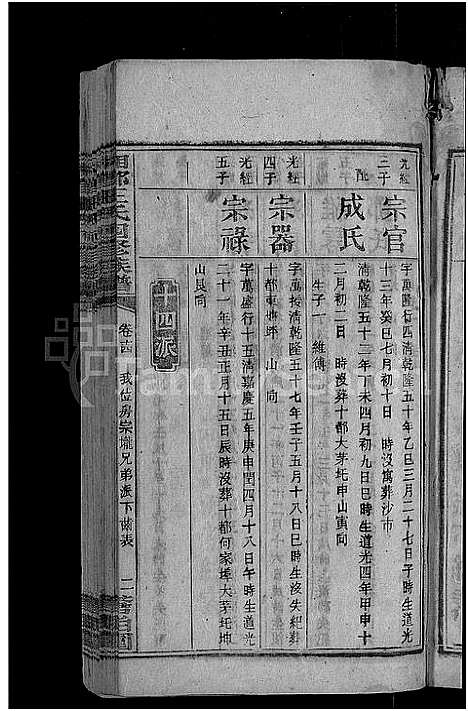 光經三子
宗官
字萬隆行四清乾隆五十年乙巳三月二十七日子時生道光
十三年癸巳七月初十日 時沒寓葬沙市
配
成氏
清乾隆五十二年丁未四月初九日巳時生道光四年甲申十
二月初二日 時沒葬十都大茅圫申山寅向
生子一 維傳
光經四子
宗器
字萬授清乾隆五十七年壬子五月十八日巳時生沒失紀葬
十都東塘坪 山 向
光經五子
宗祿
字萬盛行十五清嘉慶五年庚申閏四月十八日午時生道光
二十一年辛丑正月十五日辰時沒葬十都何家埠大茅圫坤
山艮向
十四派
卷十四 我位房宗壠兄弟派下齒表 二